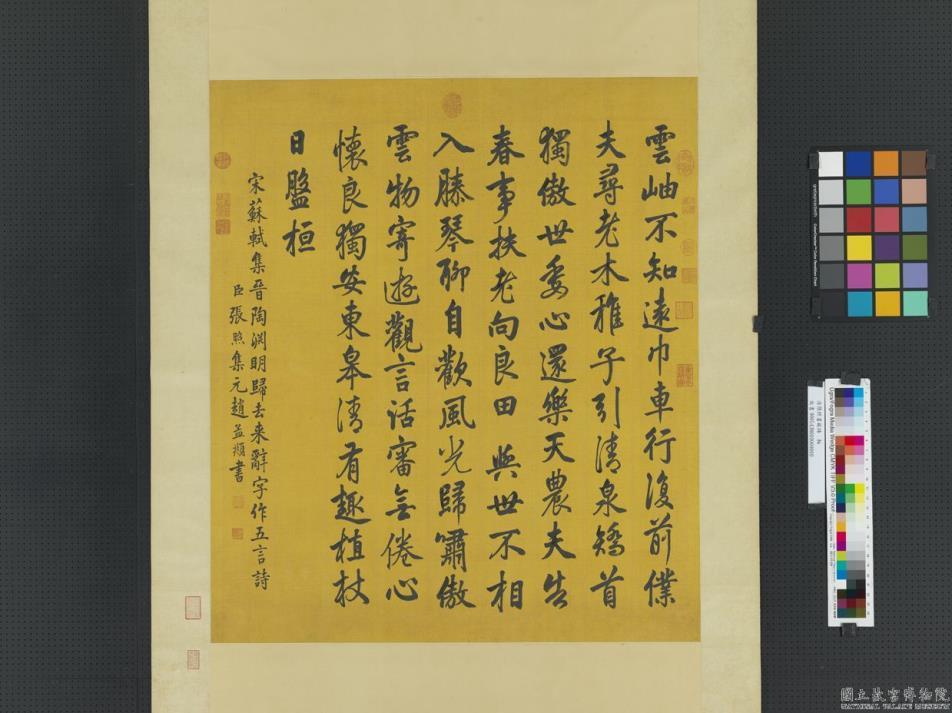 雲岫不知遠巾車行復前僕
夫尋老木稚子引清泉矯首
獨傲世委心還樂天農夫告
春事扶老向良田與世不相
入膝琴聊自歡風光歸嘯傲
雲物寄遊觀言話審無倦心
懷良獨安東皋清有趣植杖
日盤桓
宋蘇軾集晉陶淵明歸去來辭字作五言詩
臣張照集元趙孟頫書
國立故宮博物院
NATIONAL PALACE MUSEUM